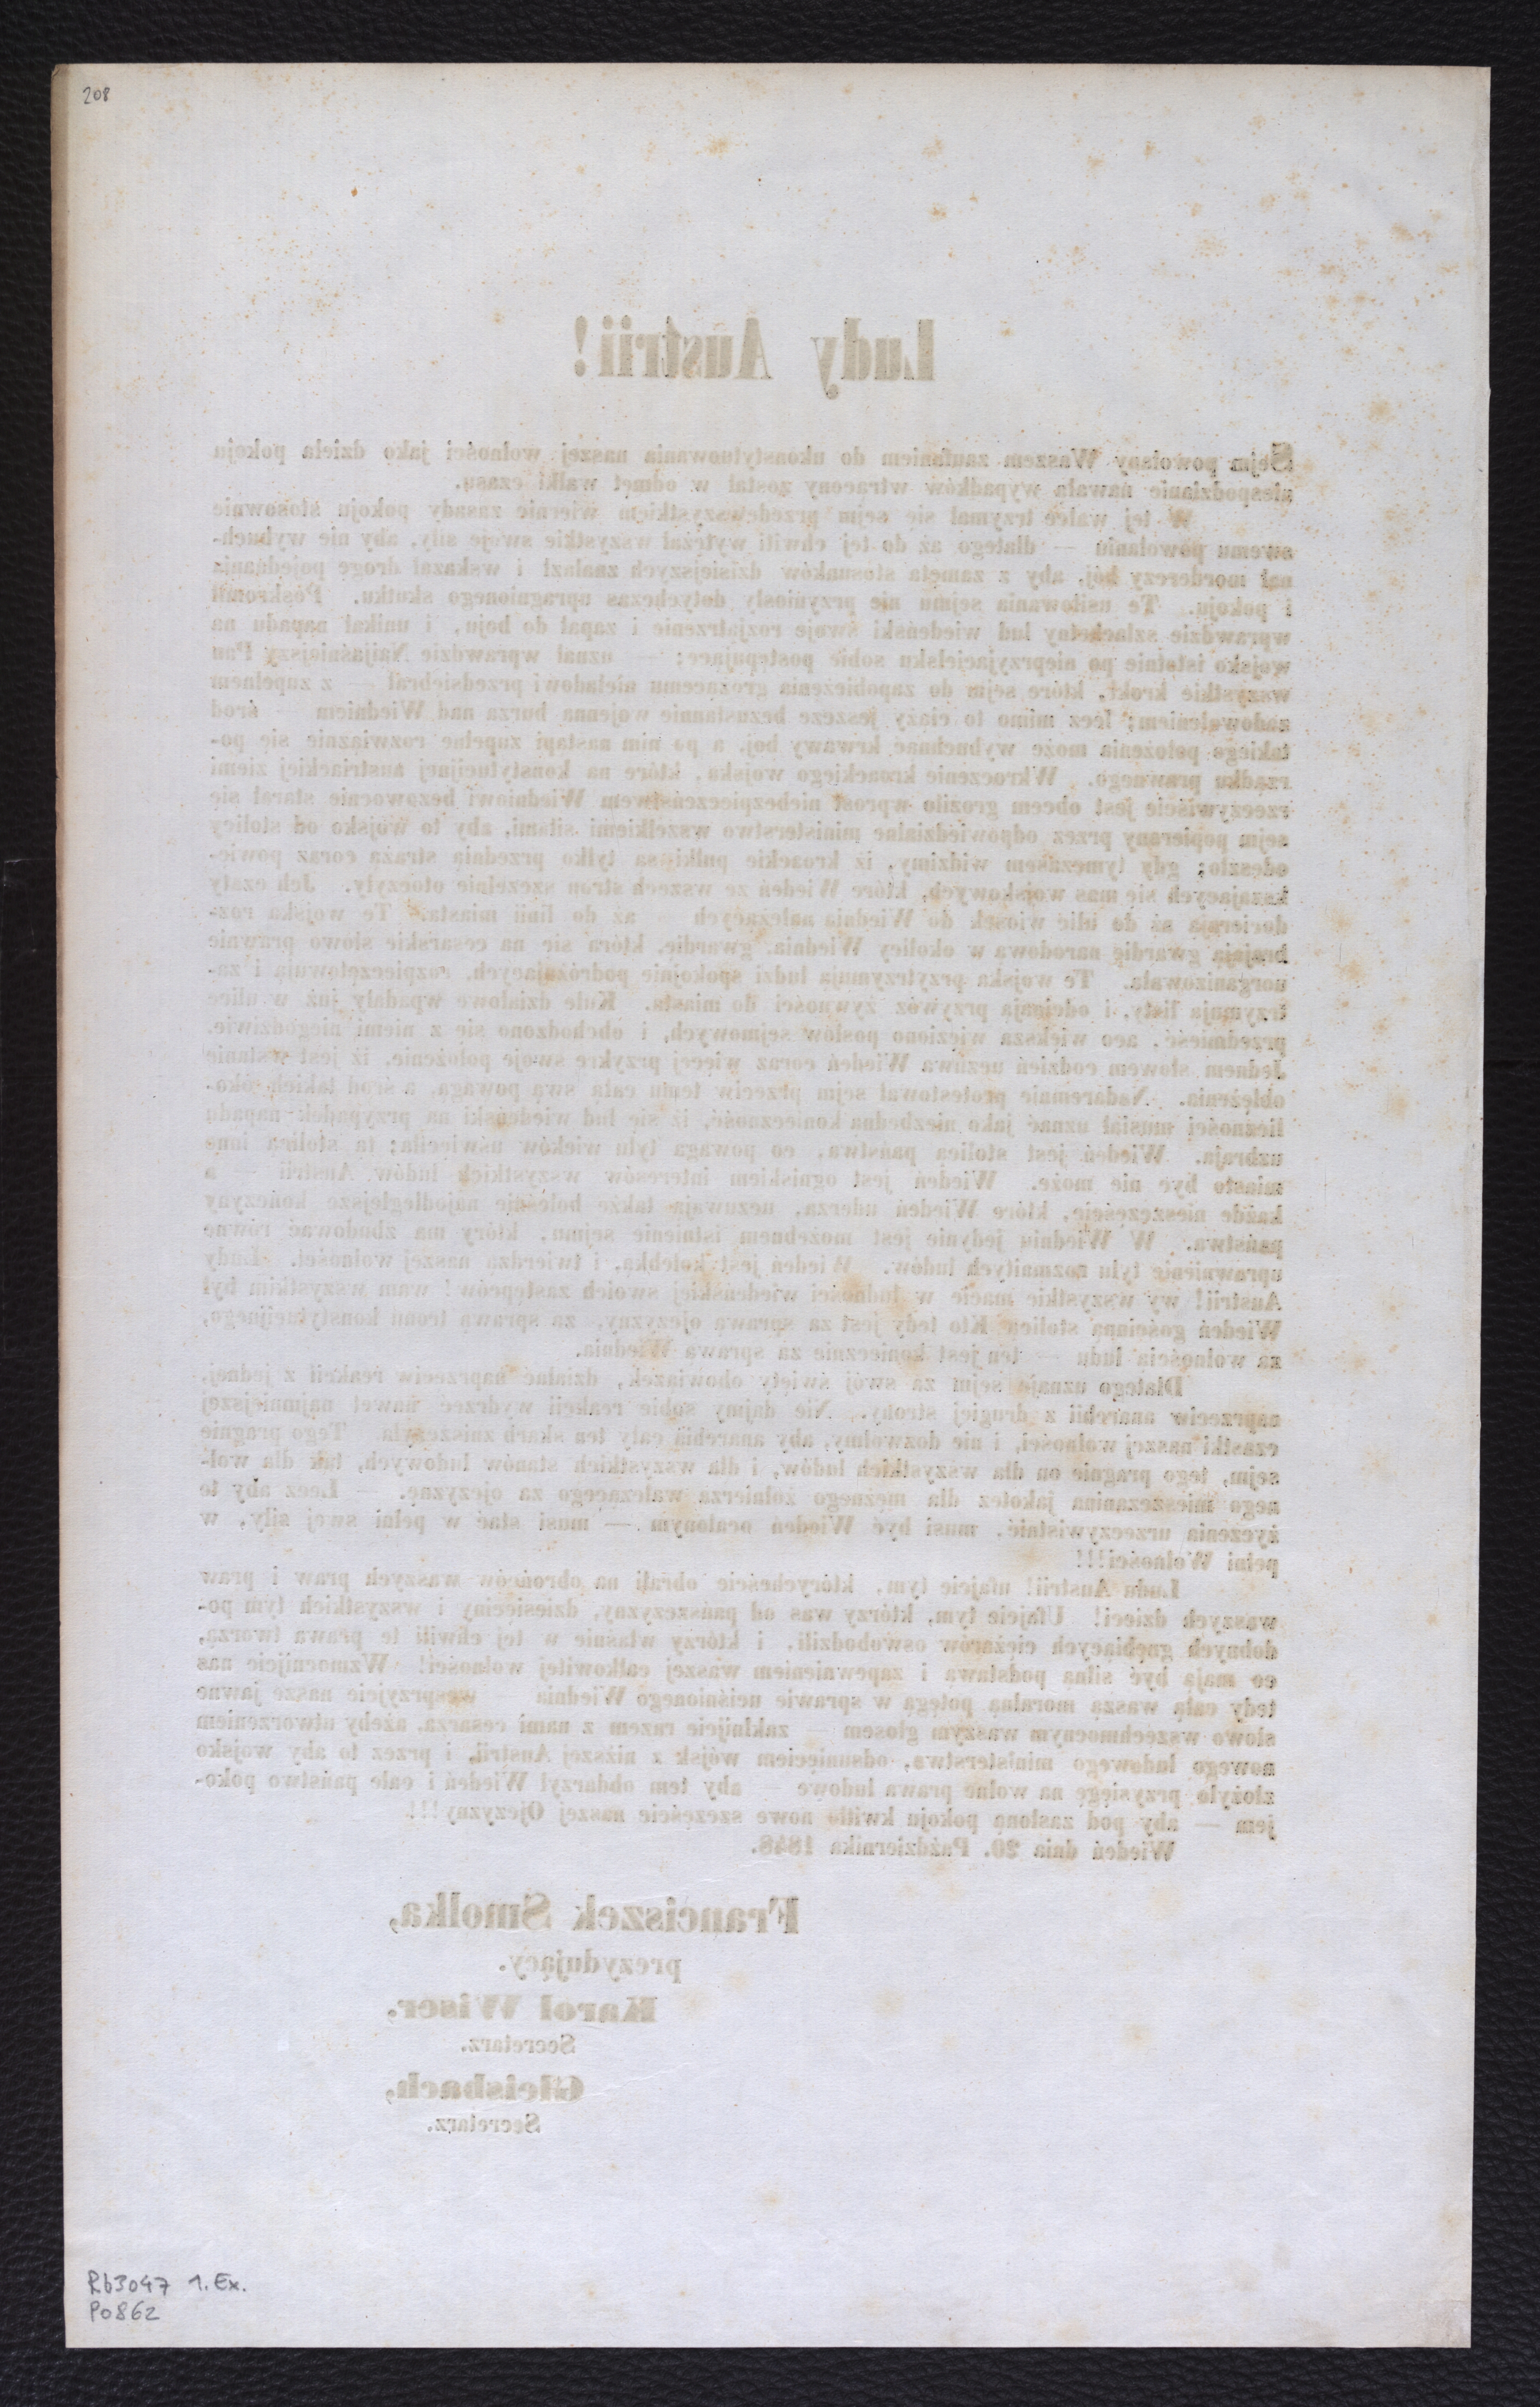 208
Ludy Austrii!
Sejm powołany Waszem zaufaniem do ukonstytuowania naszej wolności jako dzieła pokoju
niespodzianie nawałą wypadków wtrącony został w odmęt walki czasu.
W tej walce trzymał się sejm przedewszystkiem wiernie zasady pokoju stosownie
swemu powołaniu — dlatego aż do tej chwili wytężał wszystkie swoje siły, aby nie wybuch-
nął morderczy bój, aby z zamętu stosunków dzisiejszych znalazł i wskazał drogę pojednania
i pokoju. Te usiłowania sejmu nie przyniosły dotychczas upragnionego skutku. Poskromił
wprawdzie szlachetny lud wiedeński swoje rozjątrzenie i zapał do boju, i unikał napadu na
wojsko istotnie po nieprzyjacielsku sobie postępujące; — uznał wprawdzie Najjaśniejszy Pan
wszystkie kroki, które sejm do zapobieżenia grożącemu nieładowi przedsiebrał — z zupełnem
zadowoleniem; lecz mimo to ciąży jeszcze bezustannie wojenna burza nad Wiedniem — środ
takiego położenia może wybuchnąć krwawy boj, a po nim nastąpi zupełne rozwiąznie się po-
rządku prawnego. Wkroczenie kroackiego wojska, które na konstytucijnej austriackiej ziemi
rzeczywiście jest obcem groziło wprost niebezpieczeństwem Wiedniowi bezowocnie starał się
sejm popierany przez odpowiedzialne ministerstwo wszelkiemi siłami, aby to wojsko od stolicy
odeszło; gdy tymczasem widzimy, iż kroackie pułki są tylko przednią strażą coraz powię-
kszających się mas wojskowych, które Wiedeń ze wszech stron szczelnie otoczyły. Jch czaty
docierają aż do ulic wiosek do Wiednia należących — aż do linii miasta. Te wojska roz-
brajają gwardię narodową w okolicy Wiednia, gwardię, która się na cesarskie słowo prawnie
uorganizowała. Te wojska przytrzymują ludzi spokojnie podróżujących, rozpieczętowują i za-
trzymują listy, i odcinają przywóz żywności do miasta. Kule działowe wpadały już w ulice
przedmieść, aco większa więziono posłów sejmowych, i obchodzono się z niemi niegodziwie.
Jednem słowem codzień uczuwa Wiedeń coraz więcej przykre swoje położenie, iż jest wstanie
oblężenia. Nadaremnie protestował sejm przeciw temu całą swą powagą, a środ takich oko-
liczności musiał uznać jako niezbedną konieczność, iż się lud wiedeński na przypadek napadu
uzbraja. Wiedeń jest stolicą państwa, co powaga tylu wieków uświeciła; tą stolicą inne
miasto być nie może. Wiedeń jest ogniskiem interesów wszystkich ludów Austrii — a
każde nieszczęście, które Wiedeń uderza, uczuwają także boleśnie najodleglejsze kończyny
państwa. W Wiedniu jedynie jest możebnem istnienie sejmu, który ma zbudować równe
uprawnienie tylu rozmaitych ludów. Wiedeń jest kolebką, i twierdzą naszej wolności. Ludy
Austrii! wy wszystkie macie w ludności wiedeńskiej swoich zastępców! wam wszystkim był
Wiedeń gościnną stolicą. Kto tedy jest za sprawą ojczyzny, za sprawą tronu konstytucijnego,
za wolnością ludu — ten jest koniecznie za sprawą Wiednia.
Dlatego uznaje sejm za swój święty obowiązek, działać naprzeciw reakcii z jednej,
naprzeciw anarchii z drugiej strony. Nie dajmy sobie reakcii wydrzeć nawet najmniejszej
cząstki naszej wolności, i nie dozwolmy, aby anarchia cały ten skarb zniszczyła. Tego pragnie
sejm, tego pragnie on dla wszystkich ludów, i dla wszystkich stanów ludowych, tak dla wol-
nego mieszczanina jakoteż dla mężnego żołnierza walczącego za ojczyznę. — Lecz aby to
życzenia urzeczywistnić, musi być Wiedeń ocalonym — musi stać w pełni swej siły, w
pełni Wolności!!!
Ludu Austrii! ufajcie tym, którycheście obrali na obrońców waszych praw i praw
waszych dzieci! Ufajcie tym, którzy was od pańszczyzny, dziesięciny i wszystkich tym po-
dobnych gnębiących ciężarów oswobodzili, i którzy właśnie w tej chwili te prawa tworzą,
co mają być silną podstawą i zapewnieniem waszej całkowitej wolności! Wzmocnijcie nas
tedy całą waszą moralną potęgą w sprawie uciśnionego Wiednia — wesprzyjcie nasze jawne
słowo wszechmocnym waszym głosem — zaklnijcie razem z nami cesarza, ażeby utworzeniem
nowego ludowego ministerstwa, odsunięciem wójsk z niższej Austrii, i przez to aby wojsko
złożyło przysięgę na wolne prawa ludowe — aby tem obdarzył Wiedeń i całe państwo poko-
jem — aby pod zasłoną pokoju kwitło nowe szczęście naszej Ojczyzny!!!
Wiedeń dnia 20. Października 1848.
Franciszek Smolka,
prezydujący.
Karol Wiser,
Secretarz.
Gleisbach,
Secretarz.
Rb3047 1. Ex.
Po862